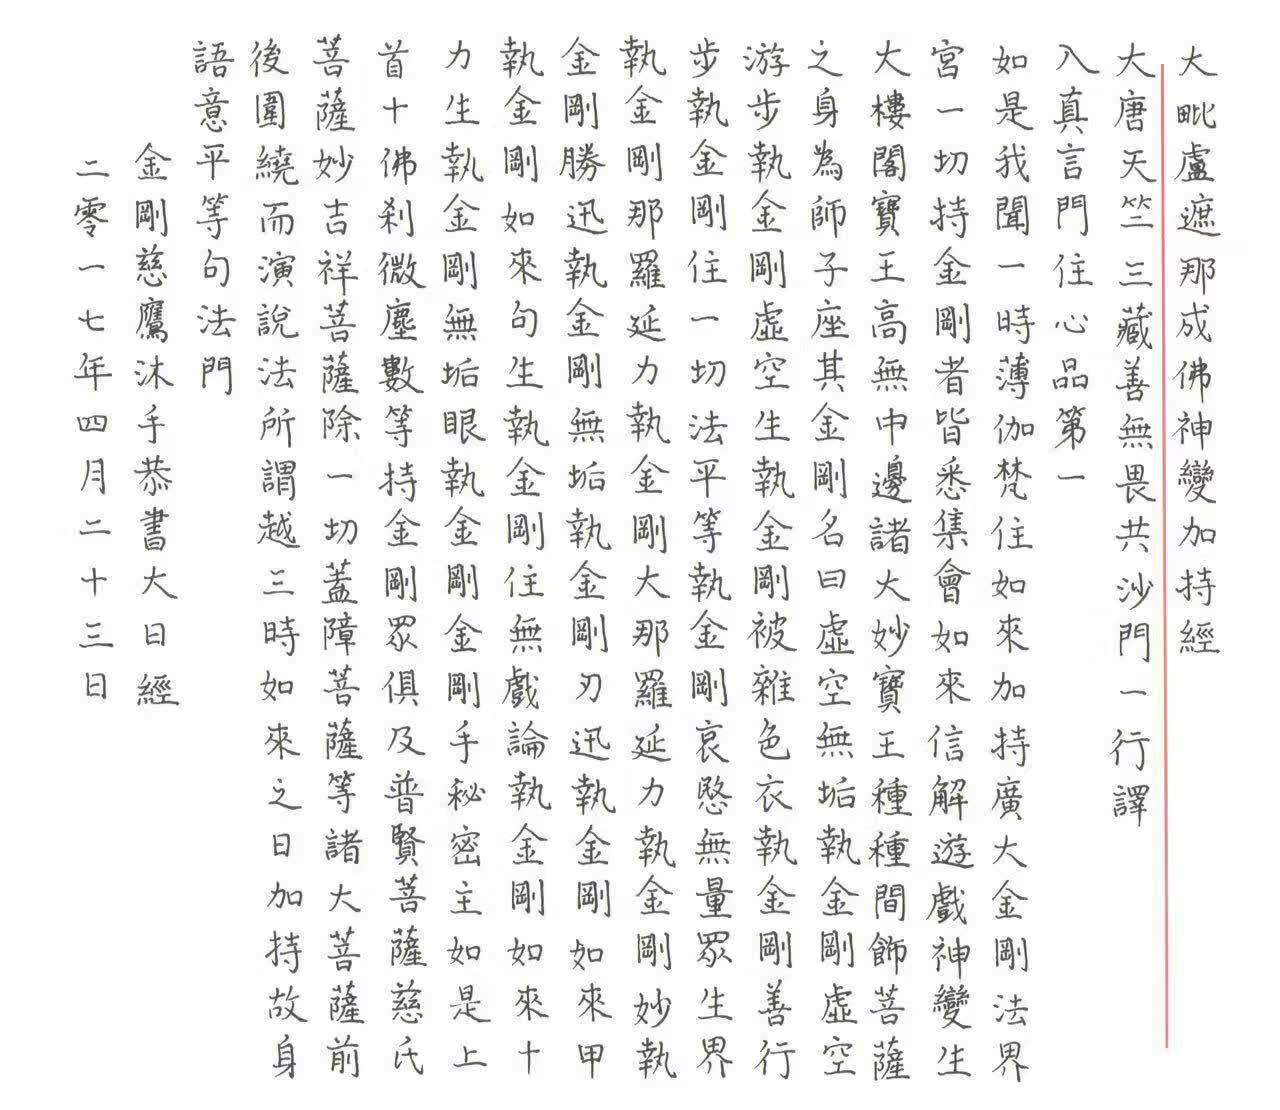 大毗盧遮那成佛神變加持經
大唐天竺三藏善無畏共沙門一行譯
入真言門住心品第一
如是我聞一時薄伽梵住如來加持廣大金剛法界
宮一切持金剛者皆悉集會如來信解遊戲神變生
大樓閣寶王高無中邊諸大妙寶王種種間飾菩薩
之身為師子座其金剛名曰虛空無垢執金剛虛空
游步執金剛虛空生執金剛被雜色衣執金剛善行
步執金剛住一切法平等執金剛哀愍無量眾生界
執金剛那羅延力執金剛大那羅延力執金剛妙執
金剛勝迅執金剛無垢執金剛刃迅執金剛如來甲
執金剛如來句生執金剛住無戲論執金剛如來十
力生執金剛無垢眼執金剛金剛手秘密主如是上
首十佛剎微塵數等持金剛眾俱及普賢菩薩慈氏
菩薩妙吉祥菩薩除一切蓋障菩薩等諸大菩薩前
後圍繞而演說法所謂越三時如來之日加持故身
語意平等句法門
金剛慈鷹沐手恭書大日經
二零一七年四月二十三日